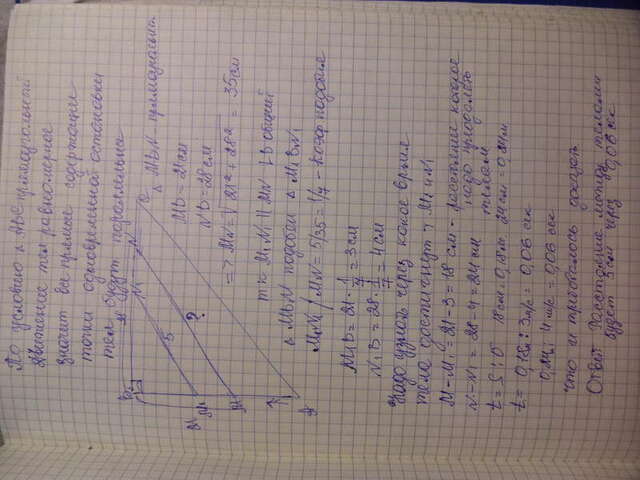 По условию △ ABC прямоугольный
движение тел равномерное
значит все прямые содержащие
точки одновременной остановки
тел будут параллельны
B
N
N
C
5
?
M
M
A
△ MBN - прямоугольн.
MB = 21 см
NB = 28 см
=> MN = √21² + 28² = 35 см
т.к. M₁N₁ || MN ∠B общий
△ MBN подобен △ M₁BN₁
M₁N₁ / MN = 5/35 = 1/7 - коэф подобия
M₁B = 21 · 1/7 = 3 см
N₁B = 28 · 1/7 = 4 см
надо узнать через какое время
тела достигнут т M₁ и N₁
M-M₁ = 21 - 3 = 18 см - расстояние которое
надо преодолеть
N-N₁ = 28 - 4 = 24 см телам
t = S : v 18 см = 0,18 м 24 см = 0,24 м
t = 0,18 : 3 м/с = 0,06 сек
0,24 : 4 м/с = 0,06 сек
что и требовалось доказать
Ответ: Расстояние между телами
будет 5 см через 0,06 сек